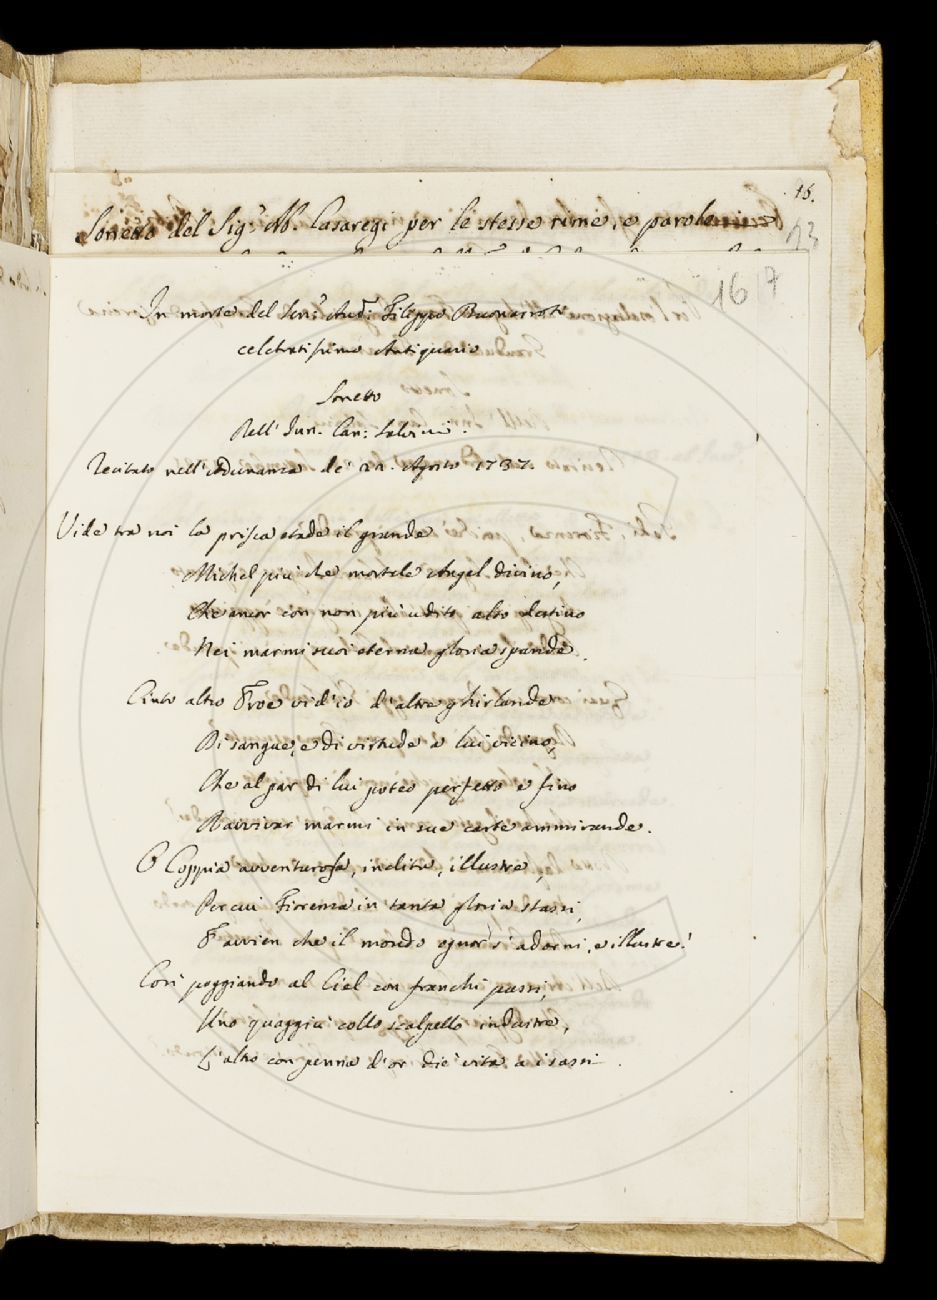 16.
Sonetto del Sig.r Ab. Casaregi per le stesse rime, e parole
13
16 17
In morte del Sen.r Aud.r Filippo Buonarroti
celebratissimo Antiquario
Sonetto
Dell' Can: Salvini.
Recitato nell' Adunanza de' Agosto 1737.
Vide tra noi la prisca etade il grande
Michel più che mortale Angel divino,
Che ancor con non più udito alto destino
Nei marmi suoi eterna gloria spande.
Cinto altro Eroe vid' io d'altre ghirlande
Di sangue, e di virtude a lui vicino,
Che al par di lui poteo perfetto e fino
Ravvivar marmi in sue carte ammirande.
O Coppia avventurosa, inclita, illustre,
Per cui Fiorenza in tanta gloria stassi,
E avvien che il mondo ognor s' adorni, e illustre!
Così poggiando al Ciel con franchi passi,
Uno quaggiù collo scalpello industre,
L' altro con penna d' or diè vita a i sassi.